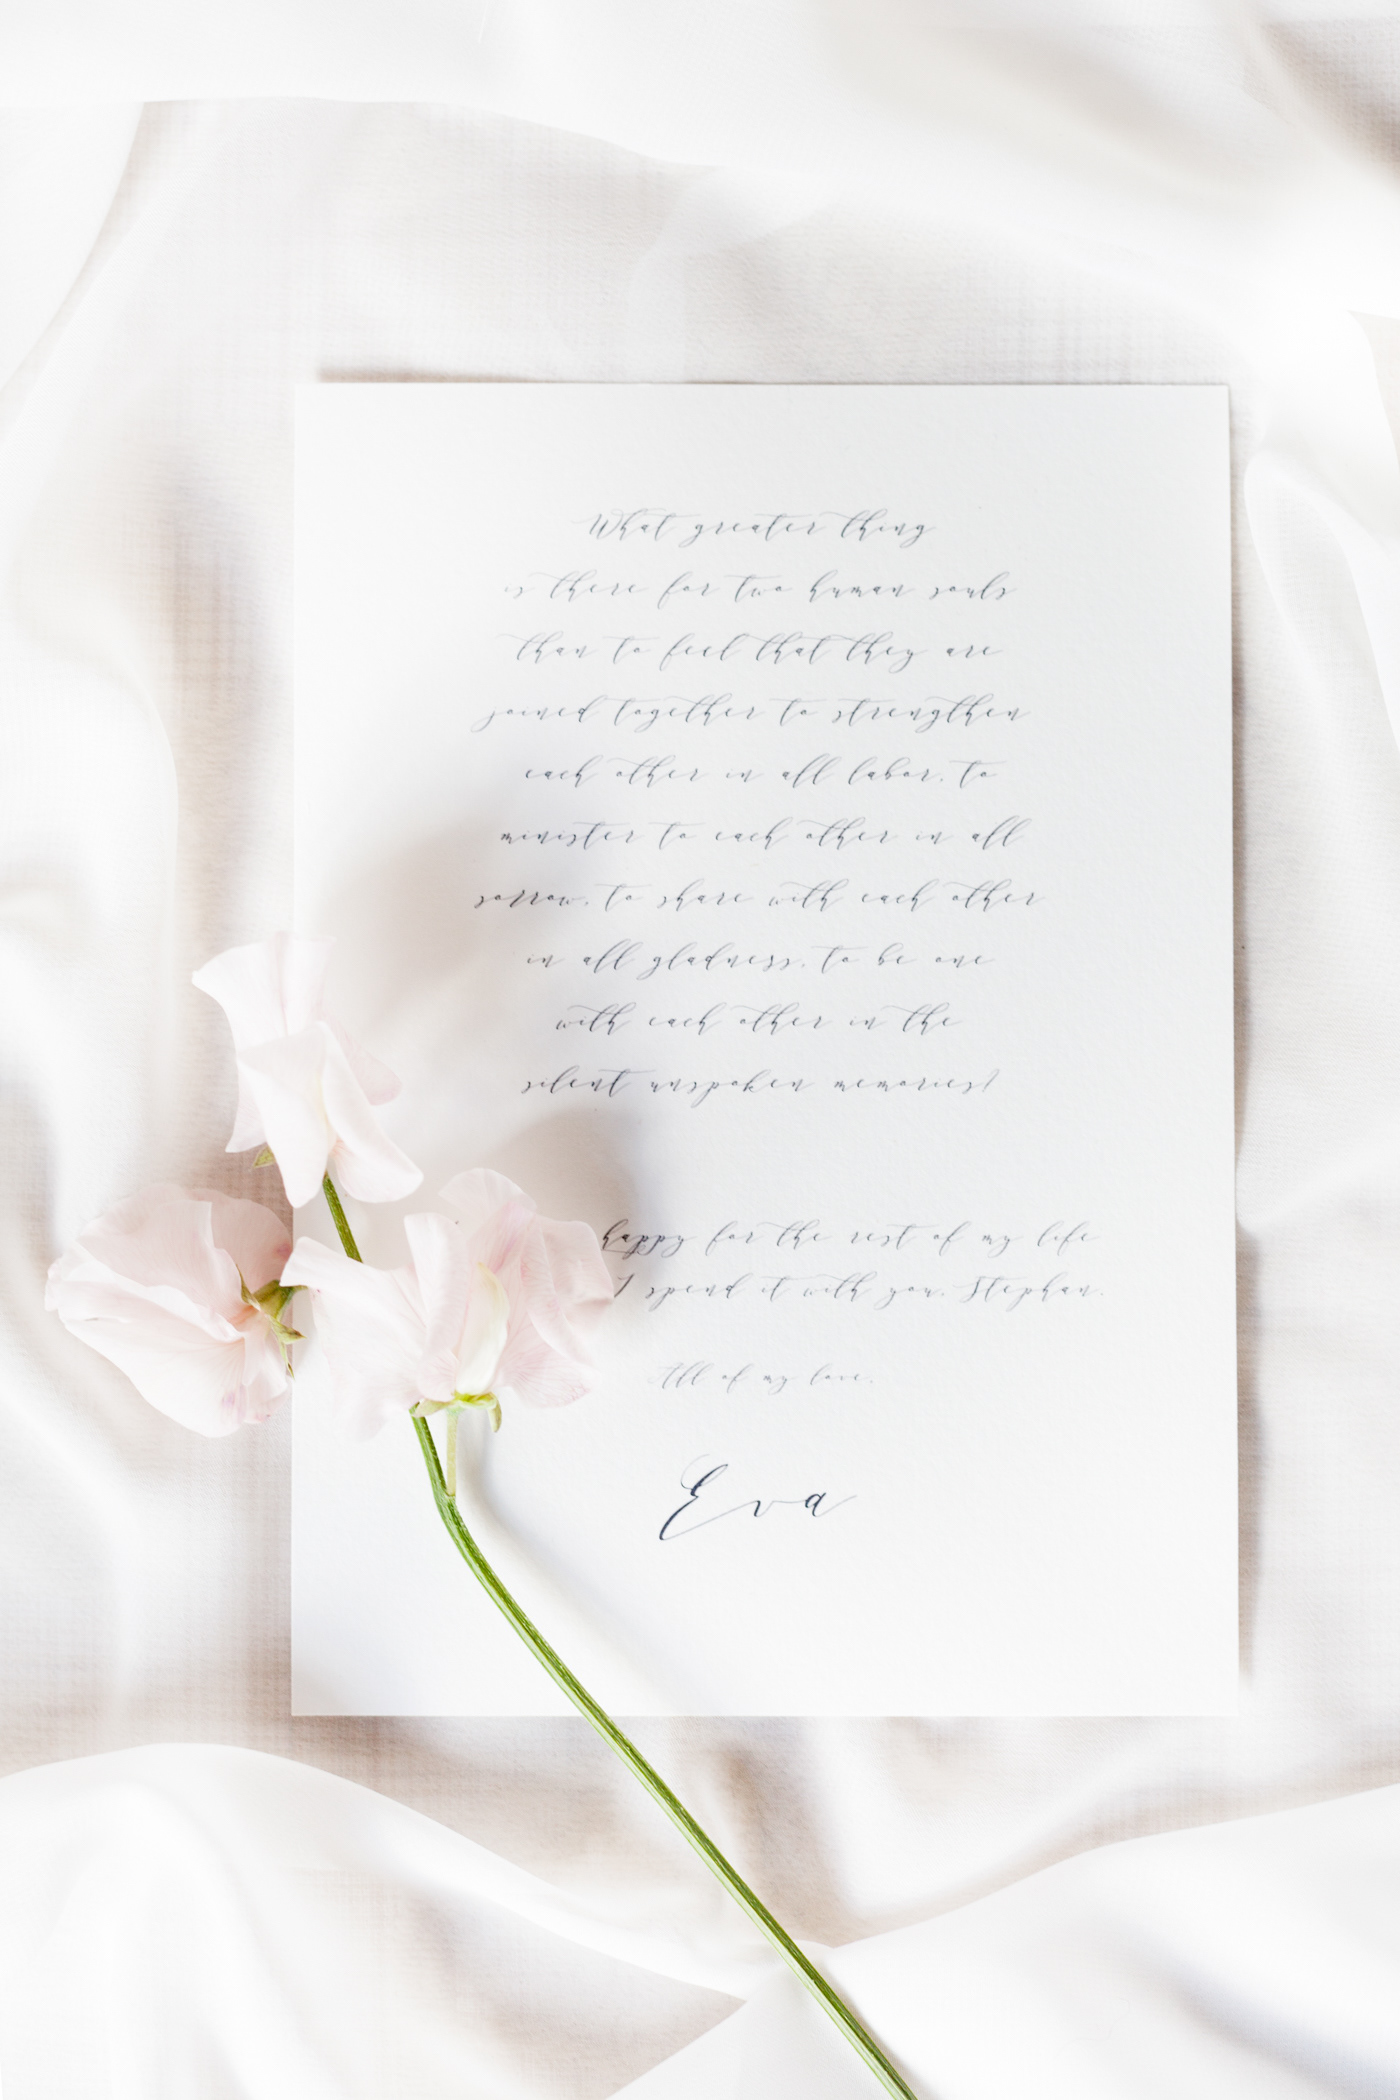 What greater thing
is there for two human souls
than to feel that they are
joined together to strengthen
each other in all labor, to
minister to each other in all
sorrow, to share with each other
in all gladness, to be one
with each other in the
silent unspoken memories?
happy for the rest of my life
I spend it with you, Stephan.
All of my love,
Eva